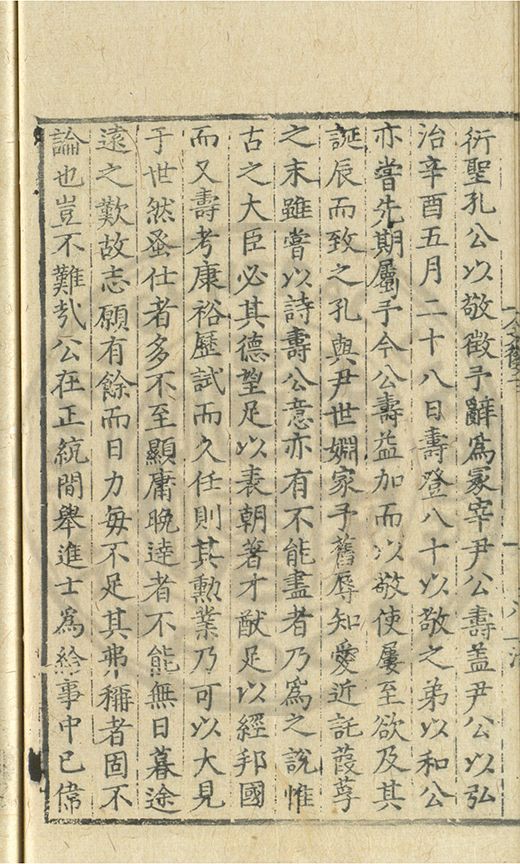 衍聖孔公以敬徵予辭爲冢宰尹公壽盖尹公以弘
治辛酉五月二十八日壽登八十以敬之弟以和公
亦嘗先期屬予今公壽益加而以敬使屢至欲及其
誕辰而致之孔與尹世婣家予舊辱知愛近託葭莩
之末雖嘗以詩壽公意亦有不能盡者乃爲之說惟
古之大臣必其德望足以表朝著才猷足以經邦國
而又壽考康裕歷試而久任則其勳業乃可以大見
于世然蚤仕者多不至顯庸晚達者不能無日暮途
遠之歎故志願有餘而日力每不足其弗稱者固不
論也豈不難哉公在正統間舉進士爲給事中已偉